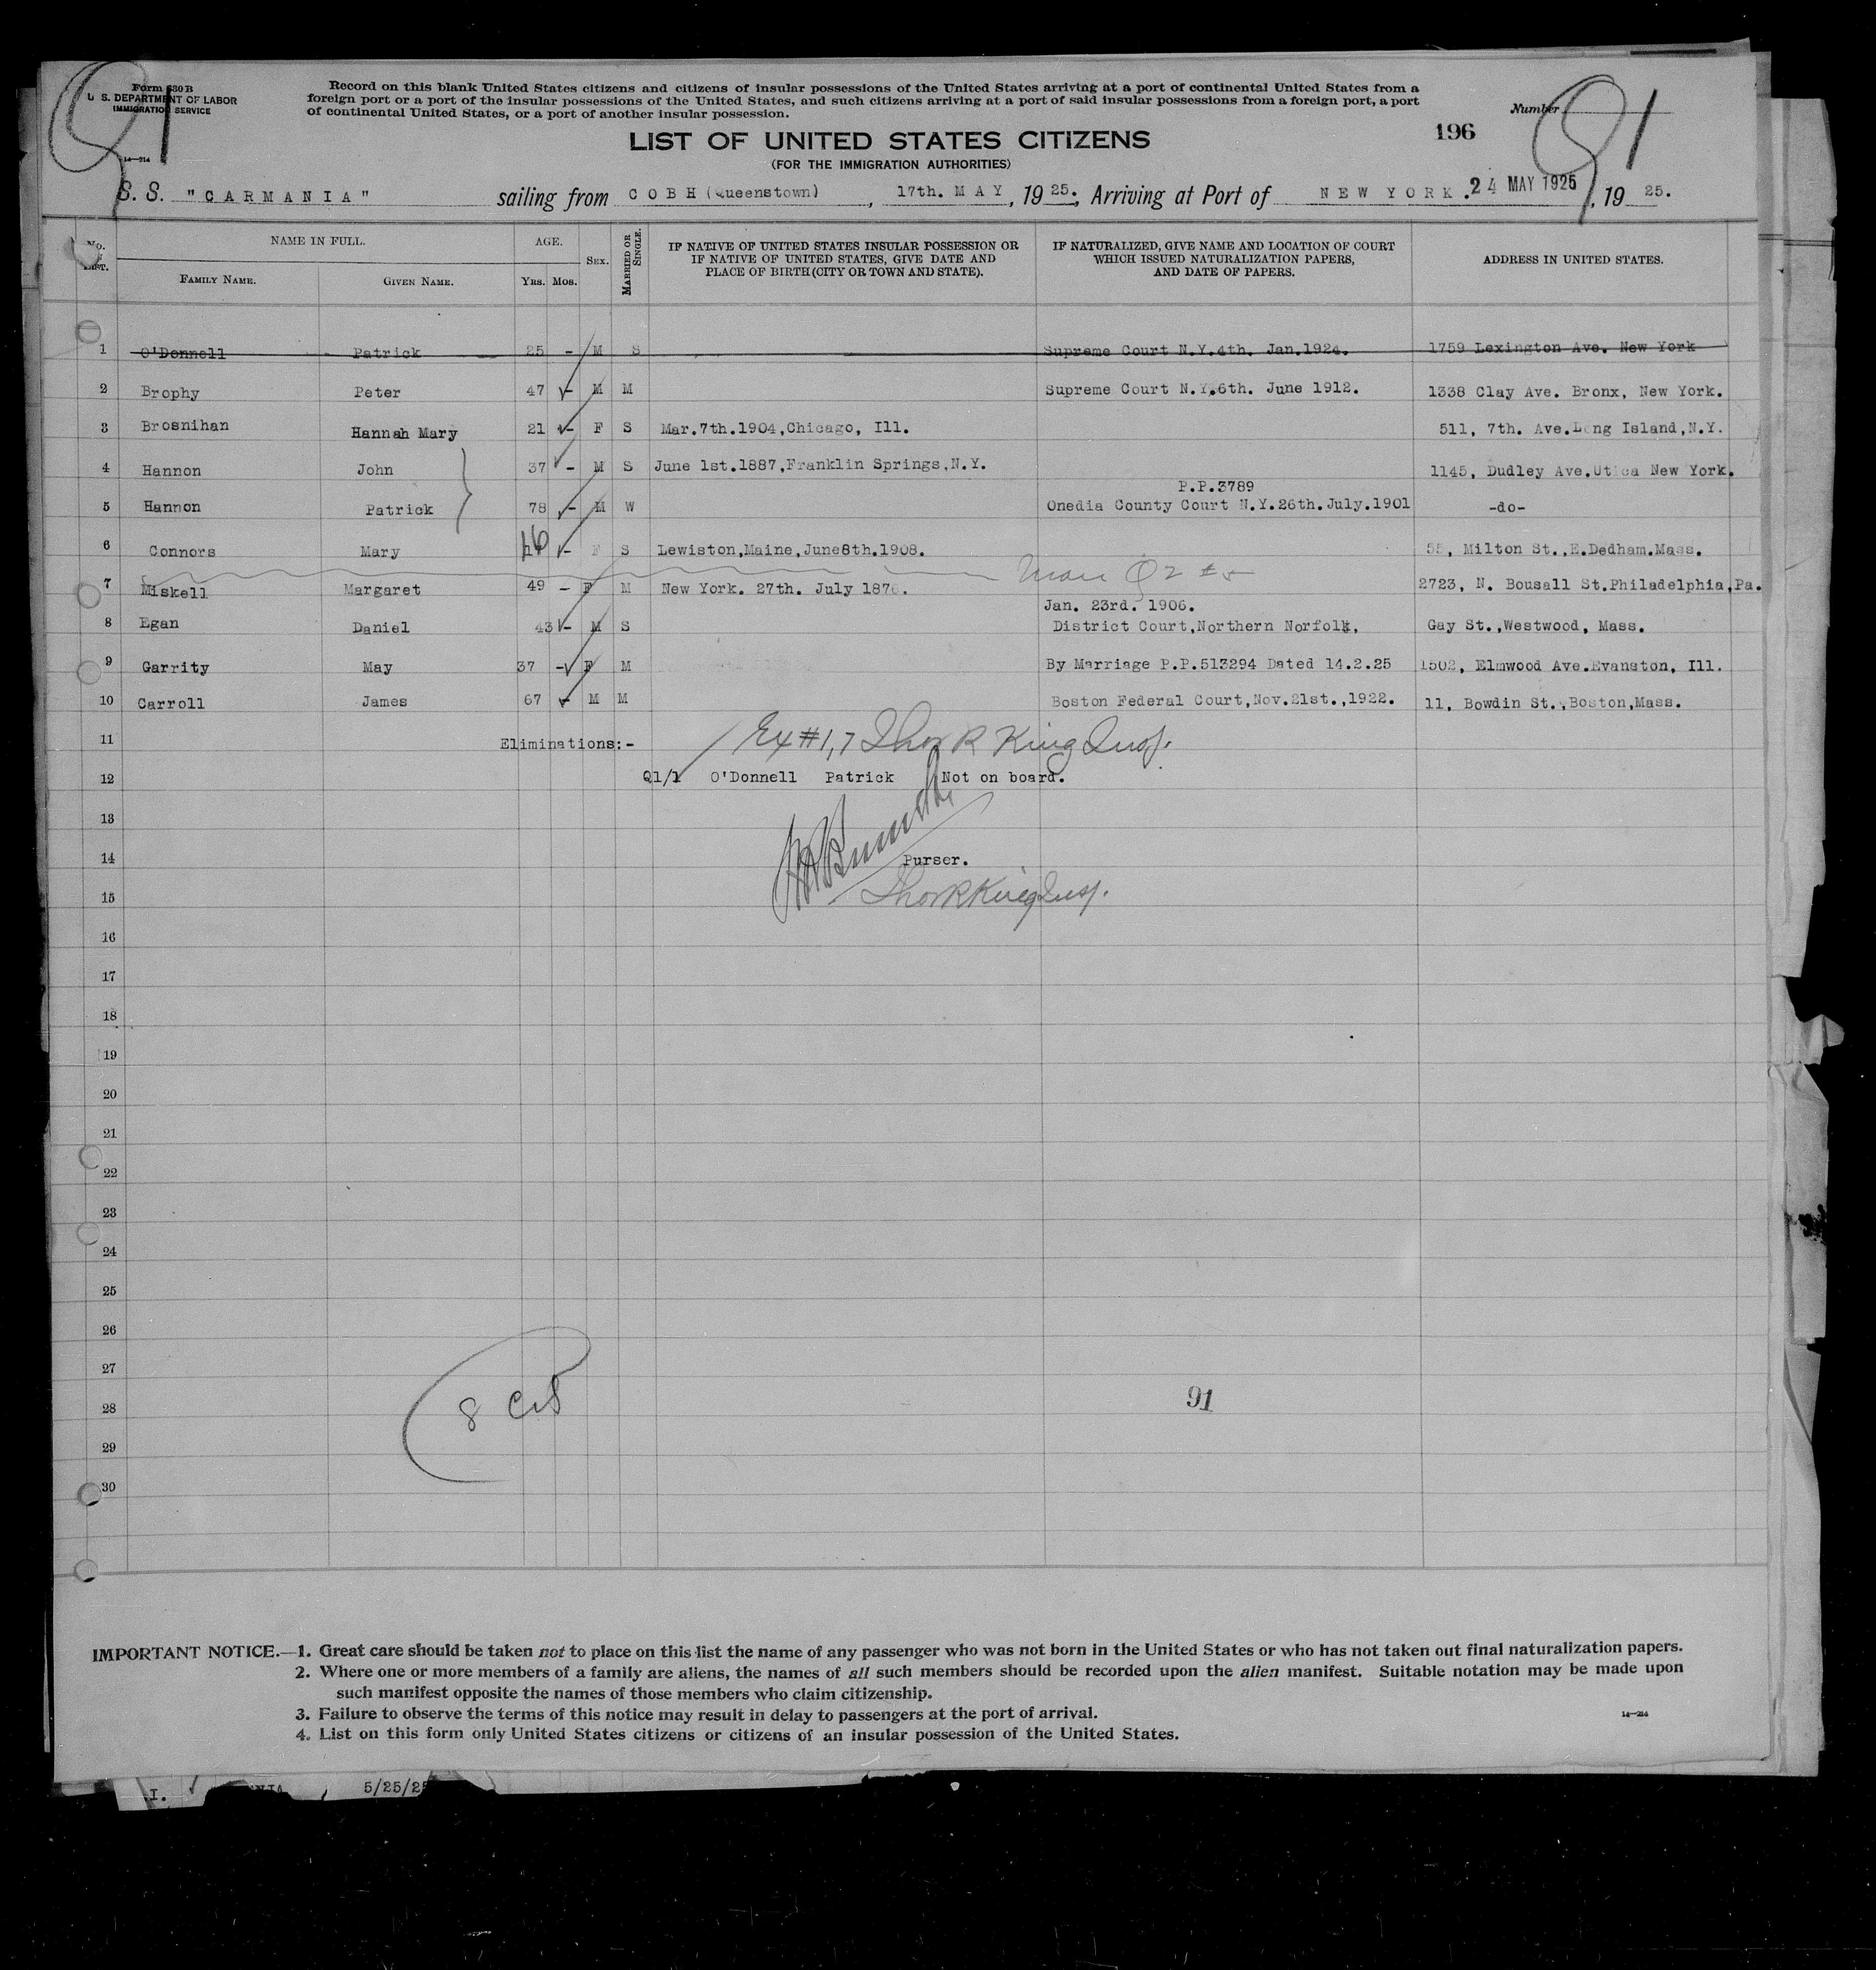 Form 630 B
U. S. DEPARTMENT OF LABOR
IMMIGRATION SERVICE
14—214
Record on this blank United States citizens and citizens of insular possessions of the United States arriving at a port of continental United States from a
foreign port or a port of the insular possessions of the United States, and such citizens arriving at a port of said insular possessions from a foreign port, a port
of continental United States, or a port of another insular possession.
LIST OF UNITED STATES CITIZENS
(FOR THE IMMIGRATION AUTHORITIES)
196
Number
91
S. S. "CARMANIA" sailing from COBH (Queenstown), 17th. MAY, 1925., Arriving at Port of NEW YORK. 24 MAY 1925, 1925.
No. LIST. NAME IN FULL. AGE. SEX. MARRIED OR SINGLE. IF NATIVE OF UNITED STATES INSULAR POSSESSION OR IF NATIVE OF UNITED STATES, GIVE DATE AND PLACE OF BIRTH (CITY OR TOWN AND STATE). IF NATURALIZED, GIVE NAME AND LOCATION OF COURT WHICH ISSUED NATURALIZATION PAPERS, AND DATE OF PAPERS. ADDRESS IN UNITED STATES.
FAMILY NAME. GIVEN NAME. YRS. MOS.
1 O'Donnell Patrick 25 - M S Supreme Court N.Y.4th. Jan.1924. 1759 Lexington Ave. New York
2 Brophy Peter 47 - M M Supreme Court N.Y.6th. June 1912. 1338 Clay Ave. Bronx, New York.
3 Brosnihan Hannah Mary 21 - F S Mar.7th.1904,Chicago, Ill. 511, 7th. Ave.Long Island,N.Y.
4 Hannon John 37 - M S June 1st.1887,Franklin Springs,N.Y. 1145, Dudley Ave.Utica New York.
P.P.3789
5 Hannon Patrick 78 - M W Onedia County Court N.Y.26th.July.1901 -do-
6 Connors Mary 16 - F S Lewiston,Maine,June8th.1908. 55, Milton St.,E.Dedham.Mass.
7 Miskell Margaret 49 - F M New York. 27th. July 1876. 2723, N. Bousall St.Philadelphia,Pa.
Jan. 23rd. 1906.
8 Egan Daniel 43 - M S District Court,Northern Norfolk, Gay St.,Westwood, Mass.
9 Garrity May 37 - F M By Marriage P.P.513294 Dated 14.2.25 1502, Elmwood Ave.Evanston, Ill.
10 Carroll James 67 - M M Boston Federal Court,Nov.21st.,1922. 11, Bowdin St.,Boston,Mass.
11 Eliminations:- Ex #1,7 Thos R King Insp.
12 Q1/1 O'Donnell Patrick Not on board.
13
14 Purser.
15 Thos R King Insp.
16
17
18
19
20
21
22
23
24
25
26
27
28 91
29
30
IMPORTANT NOTICE.—1. Great care should be taken not to place on this list the name of any passenger who was not born in the United States or who has not taken out final naturalization papers.
2. Where one or more members of a family are aliens, the names of all such members should be recorded upon the alien manifest. Suitable notation may be made upon
such manifest opposite the names of those members who claim citizenship.
3. Failure to observe the terms of this notice may result in delay to passengers at the port of arrival.
14—214
4. List on this form only United States citizens or citizens of an insular possession of the United States.
5/25/25